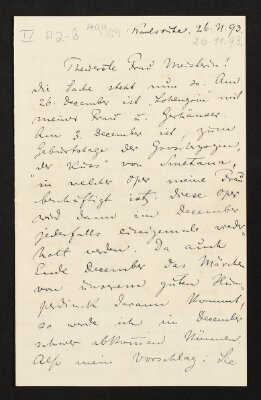 IV A2-8
Karlsruhe, 26. XI. 93.
26.11.93.
Theuerste Frau Meisterin!
die Sache steht nun so: Am
26. December ist „Lohengrin" mit
meiner Frau u. Gerhäuser.
Am 3. December ist, zum
Geburtstage der Grossherzogin,
„der Kuss" von Smetana,
in welcher Oper meine Frau
beschäftigt ist; diese Oper
wird dann im December
jedenfalls einigemale wieder-
holt werden. Da auch
Ende December das Märchen
von unserem guten Hum-
perdinck daran kommt,
so werde ich im December
schwer abkommen können.
Also mein Vorschlag: Sie